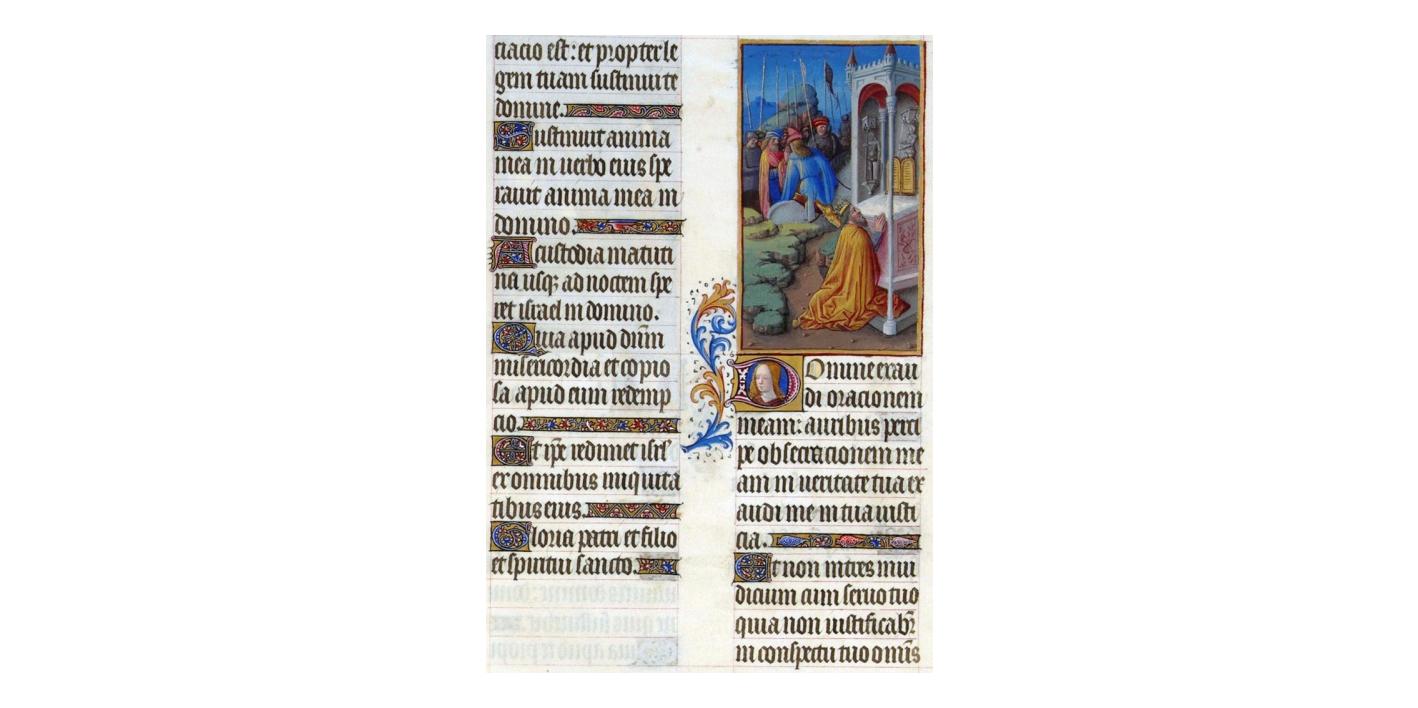 ciacio est: et propter le
gem tuam sustinui te
domine.
Sustinuit anima
mea in verbo eius spe
ravit anima mea in
domino.
A custodia matuti
na usq; ad noctem spe
ret israel in domino.
Quia apud dñm
misericordia et copio
sa apud eum redemp
cio.
Et ip̄e redimet isrl̄
ex omnibus iniquita
tibus eius.
Gloria patri et filio
et spiritui sancto.
Domine exau
di oracionem
meam: auribus perci
pe obsecracionem me
am in veritate tua ex
audi me in tua iusti
cia.
Et non intres in iu
dicium cum servo tuo
quia non iustificabr̄
in conspectu tuo omīs